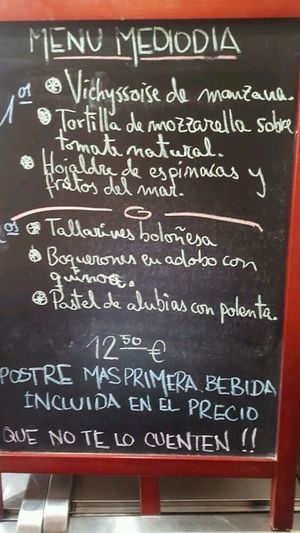 MENU MEDIODIA
1os
Vichyssoise de manzana.
Tortilla de mozzarella sobre
tomate natural.
Hojaldre de espinacas y
frutos del mar.
2os Tallarines boloñesa
Boquerones en adobo con
quinoa.
Pastel de alubias con polenta.
12'50 €
POSTRE MAS PRIMERA BEBIDA
INCLUIDA EN EL PRECIO
QUE NO TE LO CUENTEN !!